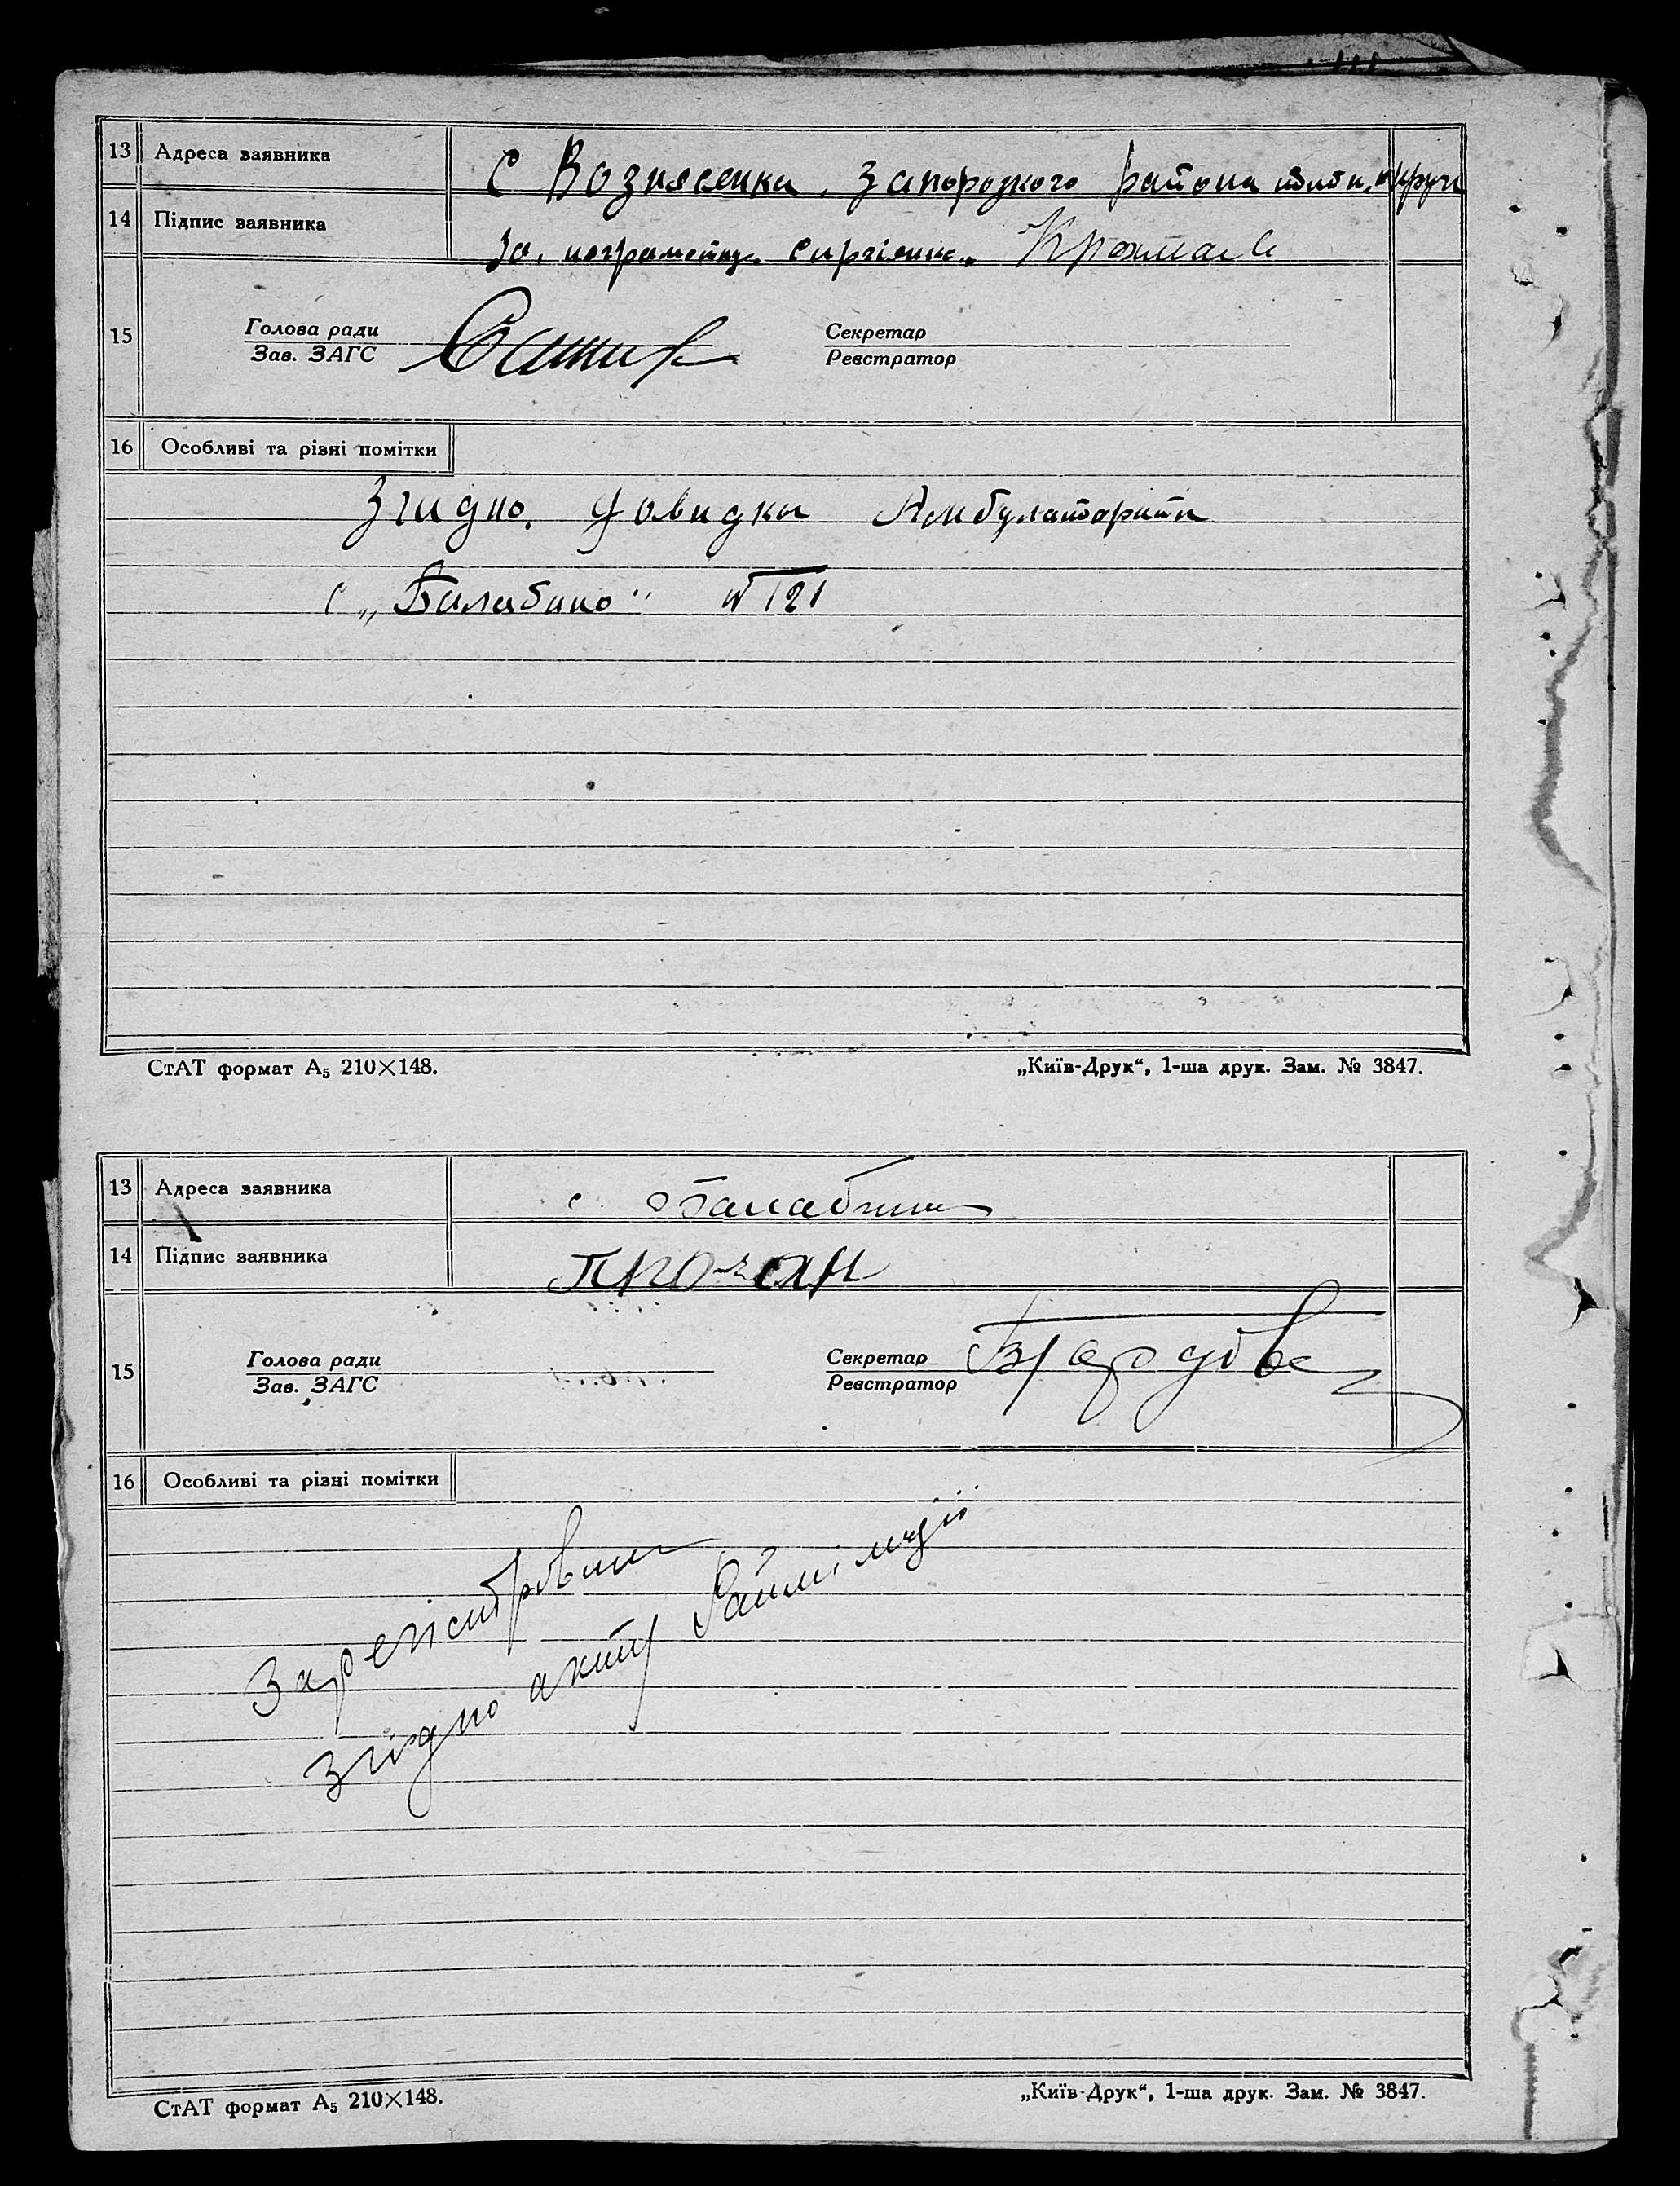 13 Адреса заявника С Вознесенка. Запорозкого района
14 Підпис заявника за. неграмотну.
Голова ради Секретар
15
Зав. ЗАГС Реєстратор
16 Особливі та різні помітки
Згидно. довидки Амбулаторити
с „Балабино" № 121
СтАТ формат А₅ 210×148. „Київ-Друк“, 1-ша друк. Зам. № 3847.
13 Адреса заявника с. Балабине
14 Підпис заявника
Голова ради Секретар
15
Зав. ЗАГС Реєстратор
16 Особливі та різні помітки
Зарегістровано
згідно акту Райміліції
СтАТ формат А₅ 210×148. „Київ-Друк“, 1-ша друк. Зам. № 3847.